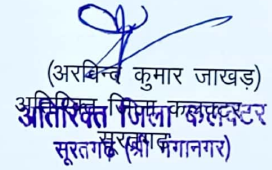 (अरविन्द कुमार जाखड़)
अतिरिक्त जिला कलक्टर
अतिरिक्त जिला कलक्टर
सूरतगढ़
सूरतगढ़ (श्री गंगानगर)